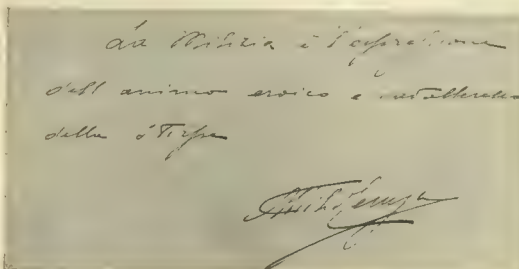 La Milizia è l'espressione
dell'animo eroico e
della Stirpe